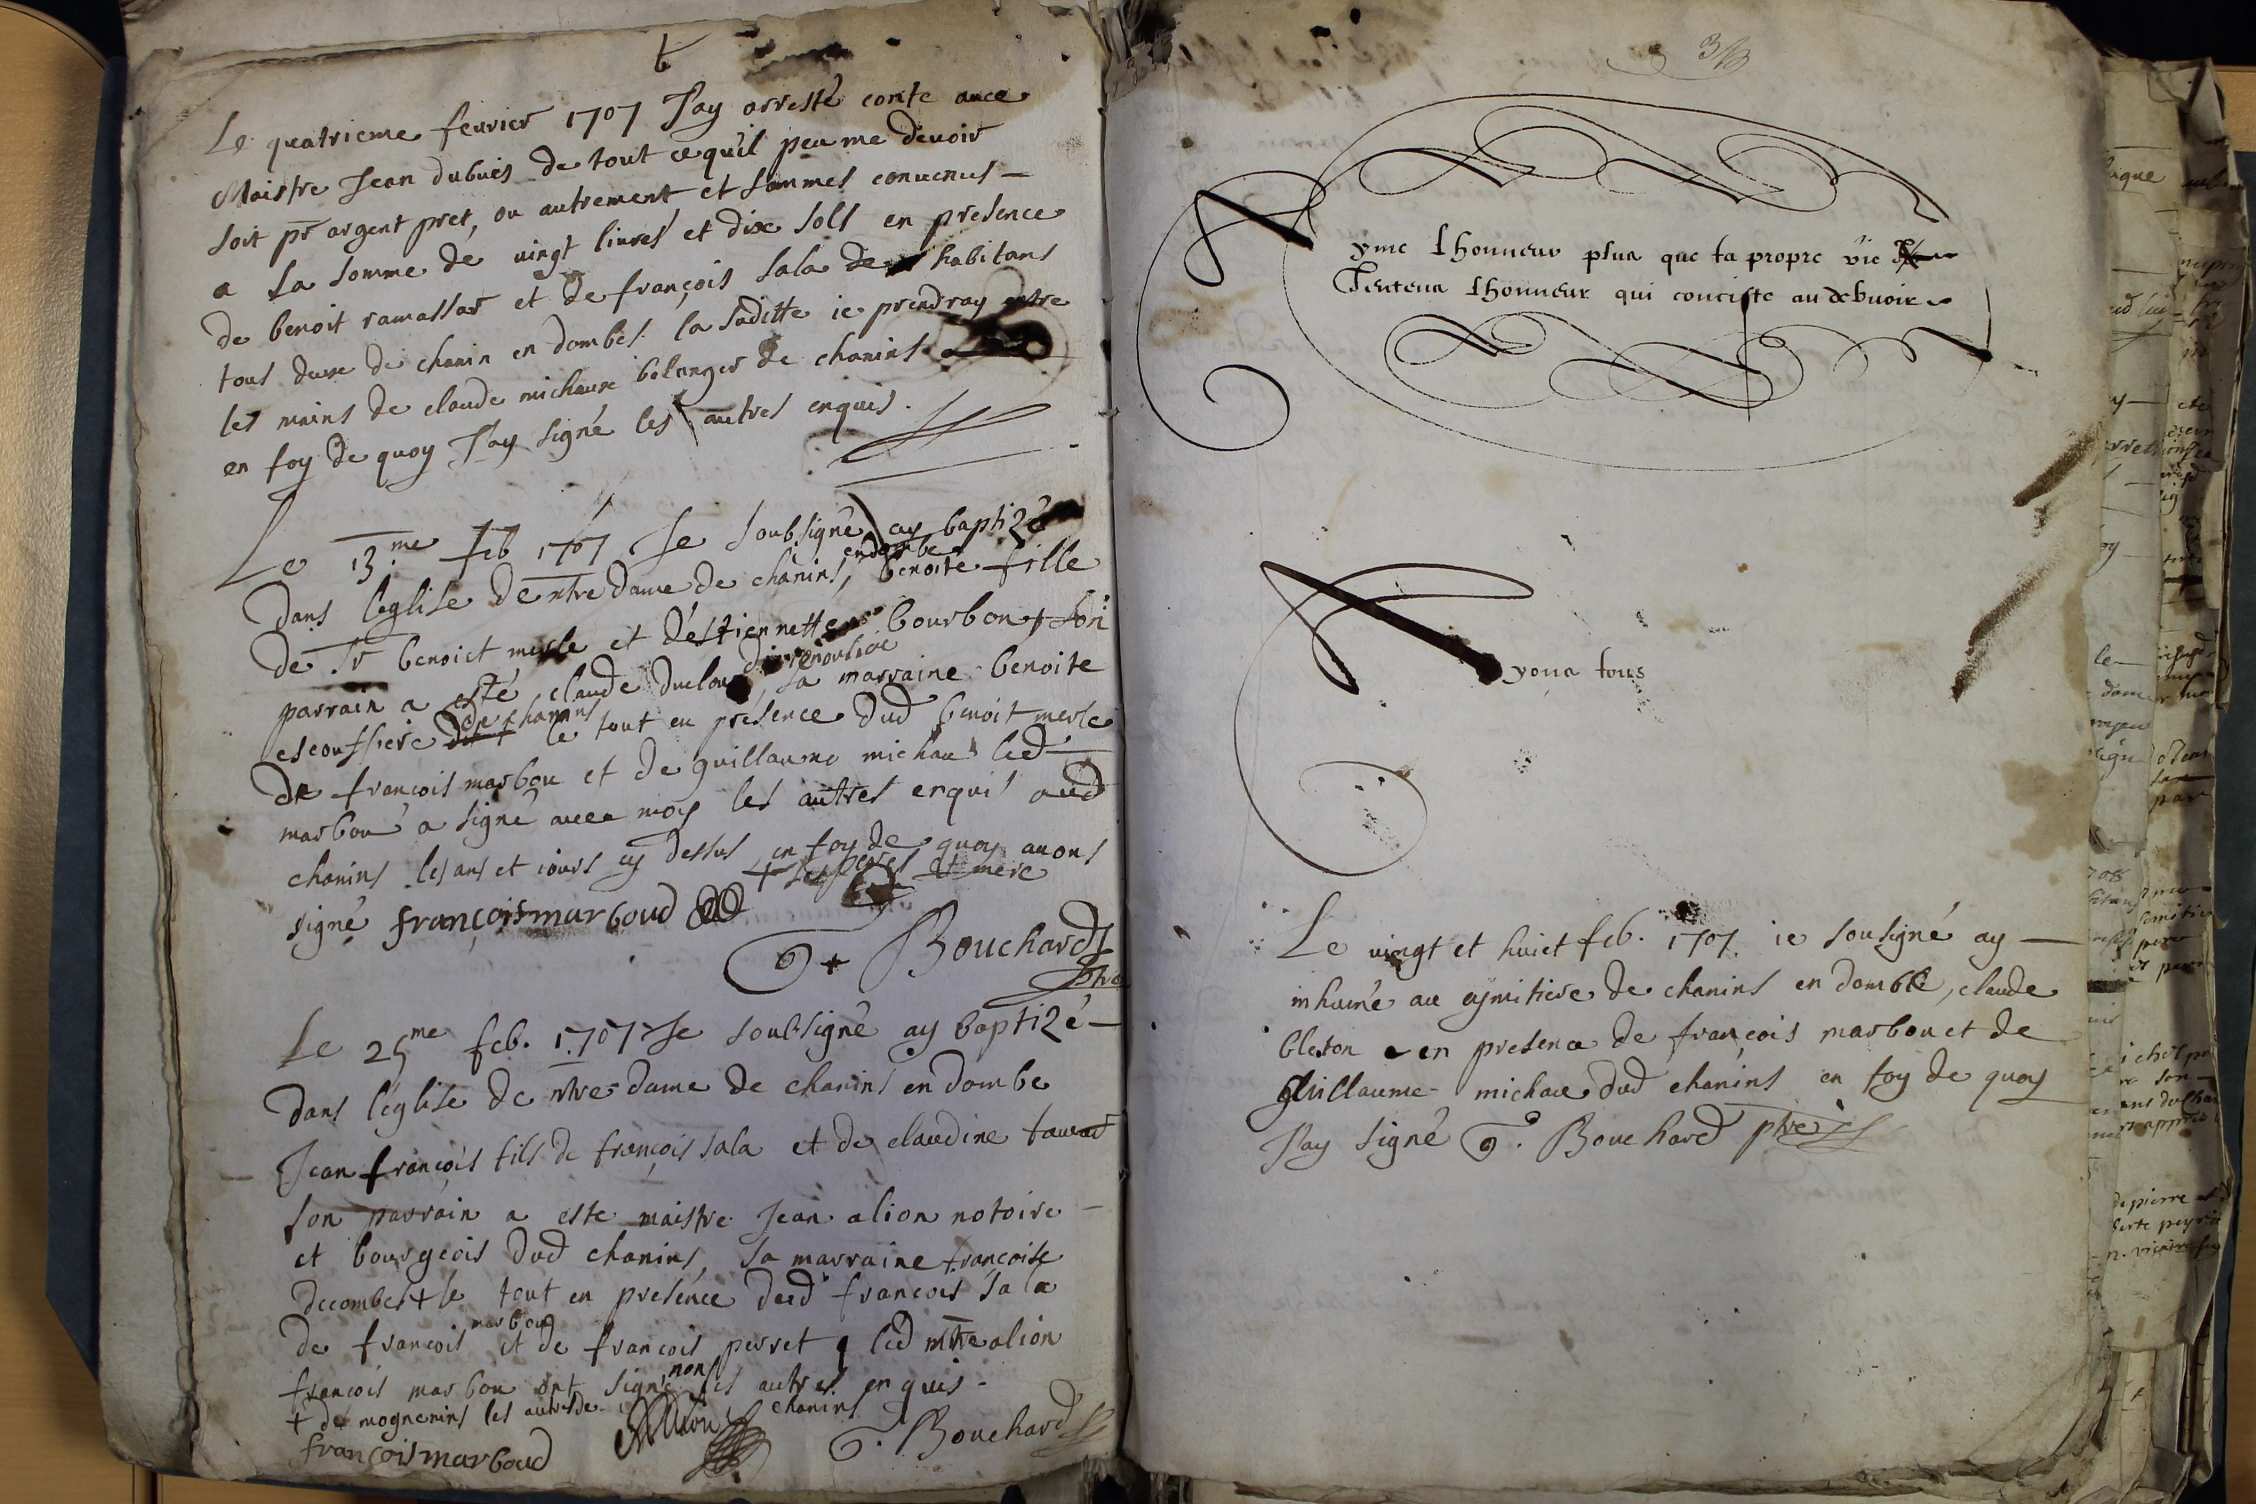 Le quatrieme feurier 1707 J'ay arresté conte auec
Maistre Jean dubuis de tout ce qu'il peu me deuoir
soit pr argent pret, ou autrement et sommes conuenus —
a la somme de vingt liures et dix sols en presence
de benoit ramassar et de françois sala habitans
tous deux de chanin en dombes. la saditte ie prendray entre
les mains de claude michaux bolanger de chanins
en foy de quoy J'ay signé les autres enquis.
Le 13.me feb 1707 Je soubsigné ay baptizé
dans l'eglise de ntre dame de chanins, en dombe benoite fille
de Sr benoict merle et d'estiennette bourbon son
parrain a esté claude duclou, sa marraine benoite
escoffiere de chanins le tout en presence dud benoit merle
de francois marbou et de guillaume michau led
marbou a signé auec moy les autres enquis aud
chanins les ans et iours cy dessus en foy de quoy auons
+ les peres et mere
signé françois marboud
Bouchard
ptre
Le 25me feb. 1707 Je soubsigné ay baptizé —
dans l'église de ntre dame de chanins en dombe
Jean françois fils de françois sala et de claudine
son parrain a este maistre Jean alion notoire —
et bourgeois dud chanins, sa marraine francoise
decombes + le tout en présence dud francois sala
de francois marbou et de francois perret led mtre alion
francois marbou ont signé non les autres enquis -
+ de mognenins les autres de chanins
françois marboud Alion Bouchard
3
Ayme Lhonneur plus que ta propre vie
Jentens Lhonneur qui conciste au debuoir
A yous tous
Le vingt et huict feb. 1707. ie sousigné ay —
inhumé au cymitiere de chanins en dombe, claude
bleton en presence de francois marbou et de
guillaume michau dud chanins en foy de quoy
J'ay signé Bouchard ptre